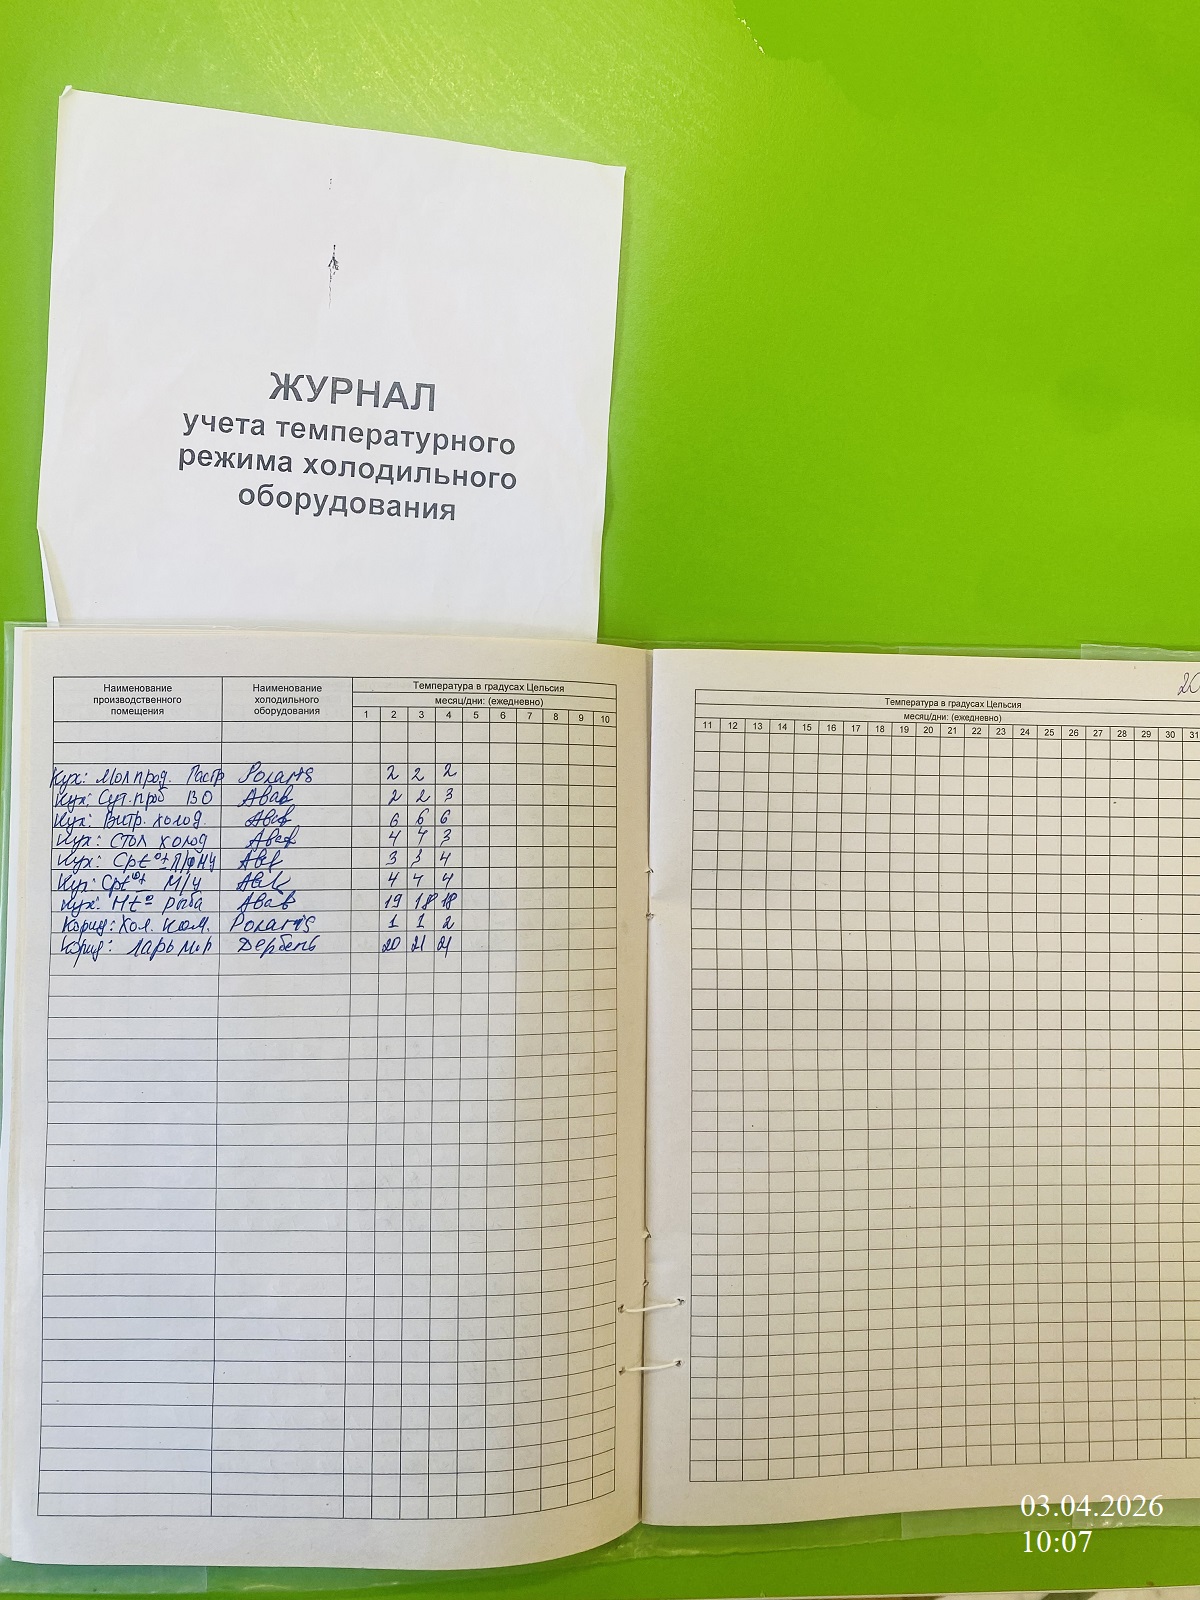 ЖУРНАЛ
учета температурного
режима холодильного
оборудования
Наименование производственного помещения Наименование холодильного оборудования Температура в градусах Цельсия
месяц/дни: (ежедневно)
1 2 3 4 5 6 7 8 9 10
Кух: Мол прод. Гастр Polaris 2 2 2
Кух: Сут. проб ВО Абат 2 2 3
Кух: Витр. холод. Абат 6 6 6
Кух: Стол холод Абат 4 4 3
Кух: Срt° П/ф Абат 3 3 4
Кух: Срt° М/ч Абат 4 4 4
Кух: Нt° рыба Абат 19 18 18
Корид: Хол. ком. Polaris 1 1 2
Корид: ларь Дербень 20 21 21
20
Температура в градусах Цельсия
месяц/дни: (ежедневно)
11 12 13 14 15 16 17 18 19 20 21 22 23 24 25 26 27 28 29 30 31
03.04.2026
10:07